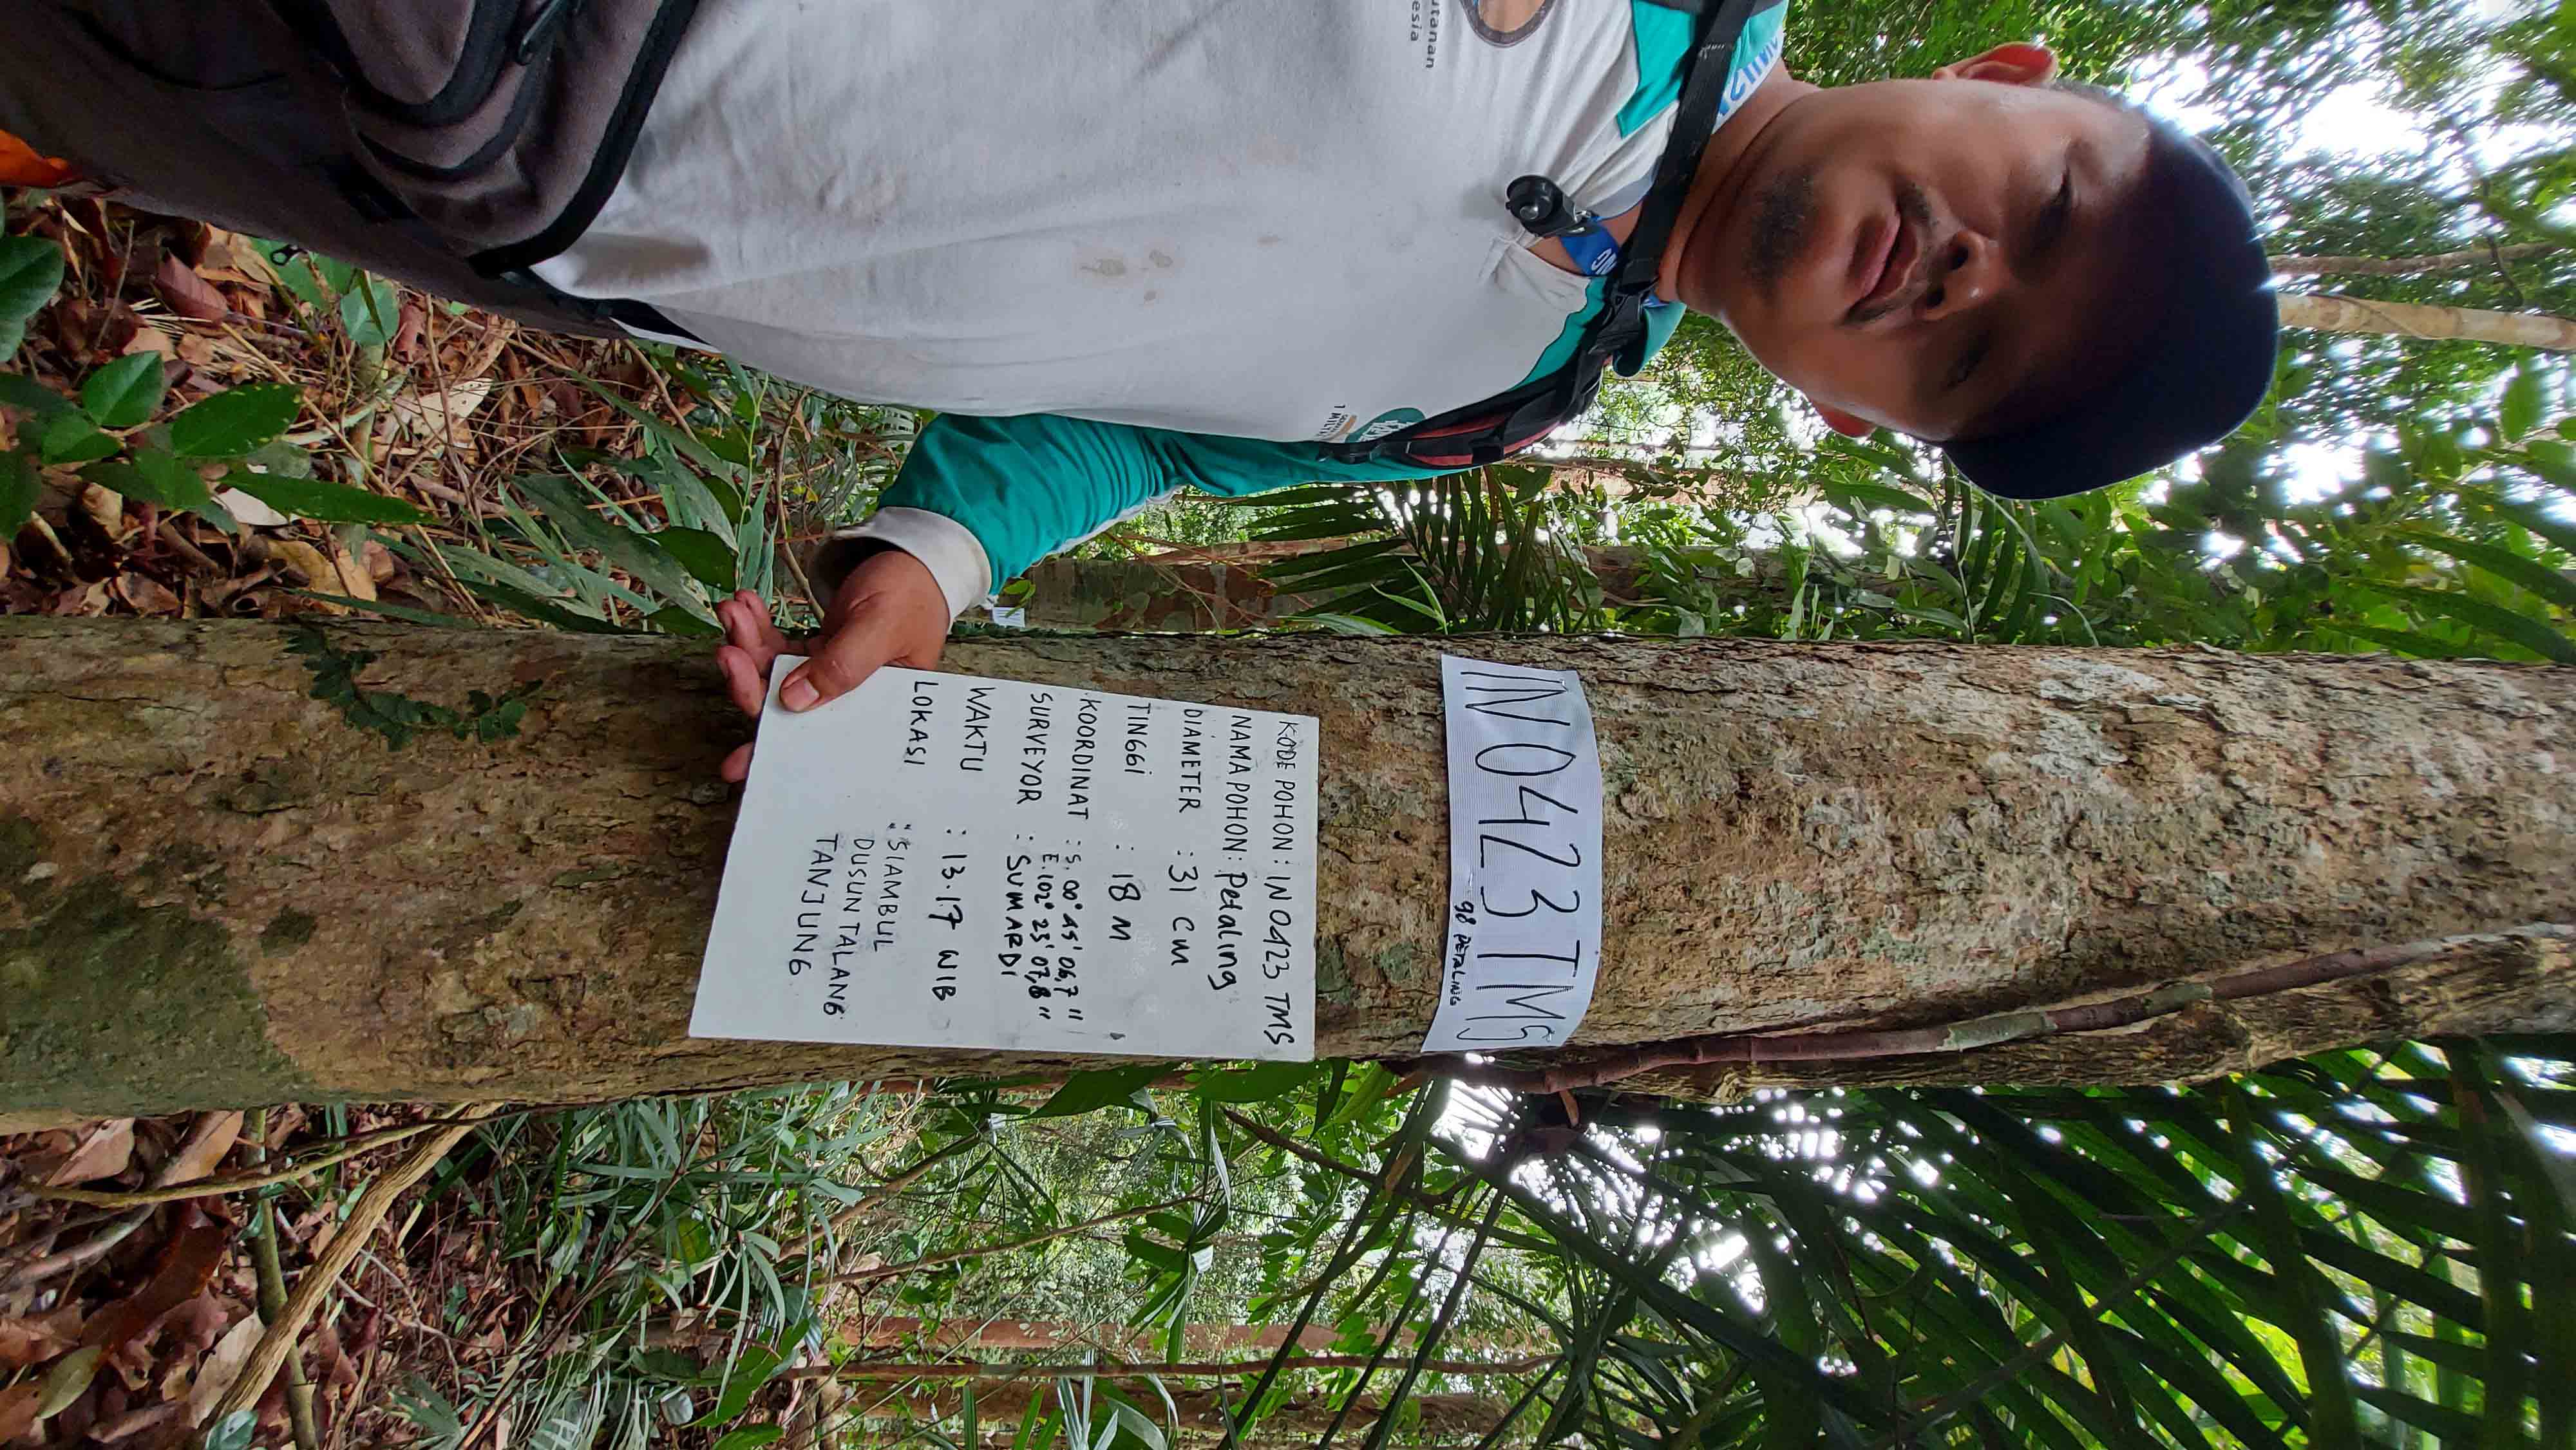 IN 0423 TMS
98 PETALING
KODE POHON : IN 0423 TMS
NAMA POHON : Petaling
DIAMETER : 31 CM
TINGGI : 18 M
KOORDINAT : S. 00° 45' 06,7 "
E. 102° 23' 07,8 "
SURVEYOR : SUMARDI
WAKTU : 13.17 WIB
LOKASI : SIAMBUL
DUSUN TALANG
TANJUNG
utanan
esia